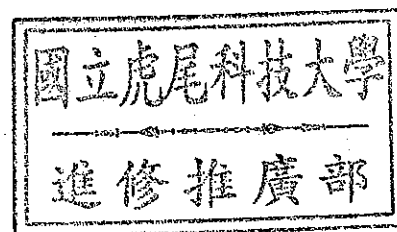 國立虎尾科技大學
進修推廣部